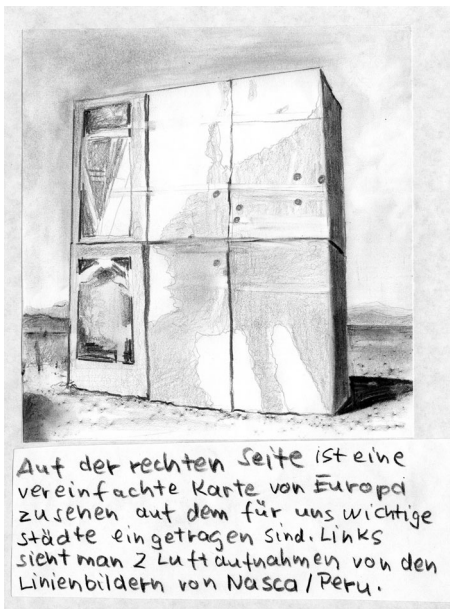 Auf der rechten Seite ist eine
vereinfachte Karte von Europa
zusehen auf dem für uns wichtige
städte eingetragen sind. Links
sieht man 2 Luftaufnahmen von den
Linienbildern von Nasca/Peru.